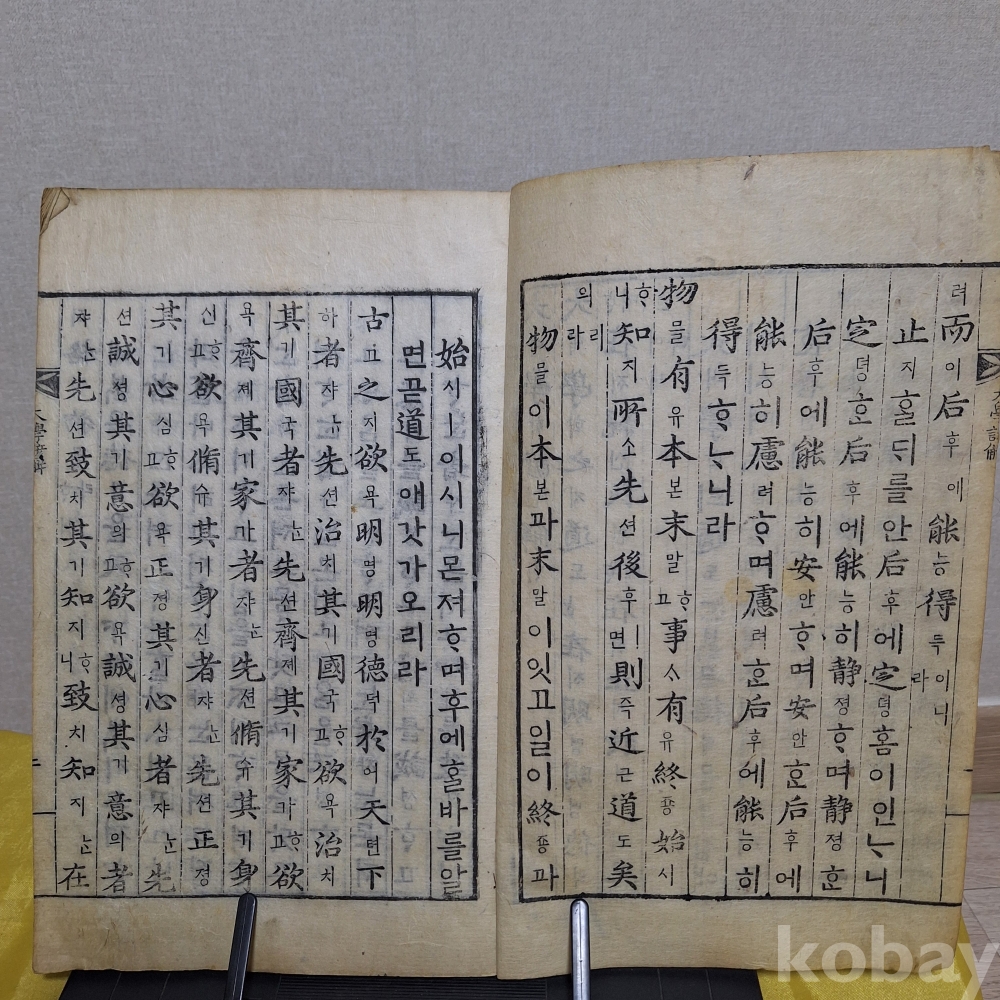 려而이后후에能능得득이니라
止지홀ᄃᆡ를안后후에定뎡홈이인ᄂᆞ니
定뎡ᄒᆞᆫ后후에能능히静졍ᄒᆞ며静졍ᄒᆞᆫ
后후에能능히安안ᄒᆞ며安안ᄒᆞᆫ后후에
能능히慮려ᄒᆞ며慮려ᄒᆞᆫ后후에能능히
得득ᄒᆞᄂᆞ니라
物믈有유本본末말ᄒᆞ고事ᄉᆞ有유終죵始시
ᄒᆞ니知지所소先션後후ㅣ면則즉近근道도矣
의리라
物믈이本본과末말이잇고일이終죵과
始시ㅣ이시니몬져ᄒᆞ며후에홀바를알
면곧道도애갓가오리라
古고之지欲욕明명明명德덕於어天텬下
하者쟈ᄂᆞᆫ先션治치其기國국ᄒᆞ고欲욕治치
其기國국者쟈ᄂᆞᆫ先션齊졔其기家가ᄒᆞ고欲
욕齊졔其기家가者쟈ᄂᆞᆫ先션脩슈其기身
신ᄒᆞ고欲욕脩슈其기身신者쟈ᄂᆞᆫ先션正졍
其기心심ᄒᆞ고欲욕正졍其기心심者쟈ᄂᆞᆫ先
션誠셩其기意의ᄒᆞ고欲욕誠셩其기意의者
쟈ᄂᆞᆫ先션致치其기知지ᄒᆞ니致치知지ᄂᆞᆫ在
大學諺解
kobay